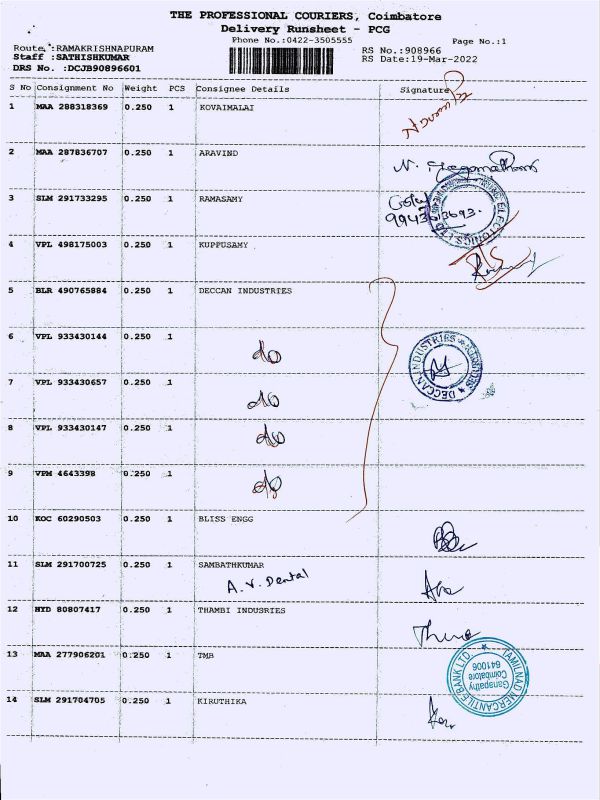 THE PROFESSIONAL COURIERS, Coimbatore
Delivery Runsheet - PCG
Phone No.:0422-3505555
Page No.:1
Route :RAMAKRISHNAPURAM
RS No.:908966
Staff :SATHISHKUMAR
RS Date:19-Mar-2022
DRS No. :DCJB90896601
S No Consignment No Weight PCS Consignee Details Signature
1 MAA 288318369 0.250 1 KOVAIMALAI
2 MAA 287836707 0.250 1 ARAVIND
3 SLM 291733295 0.250 1 RAMASAMY
4 VPL 498175003 0.250 1 KUPPUSAMY
5 BLR 490765884 0.250 1 DECCAN INDUSTRIES
DECCAN INDUSTRIES
6 VPL 933430144 0.250 1 do
7 VPL 933430657 0.250 1 do
8 VPL 933430147 0.250 1 do
9 VPM 4643398 0.250 1 do
10 KOC 60290503 0.250 1 BLISS ENGG
11 SLM 291700725 0.250 1 SAMBATHKUMAR
A.V. Dental
12 HYD 80807417 0.250 1 THAMBI INDUSRIES
13 MAA 277906201 0.250 1 TMB
TAMILNAD MERCANTILE BANK LTD.
Ganapathy
Coimbatore
641006
14 SLM 291704705 0.250 1 KIRUTHIKA